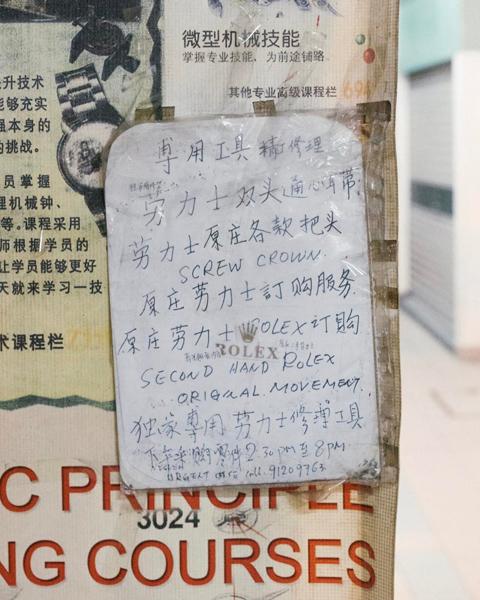 微型机械技能
掌握专业技能、为前途铺路
其他专业高级课程栏
升技术
能够充实
强本身的
的挑战。
员掌握
理机械钟、
等。课程采用
师根据学员的
让学员能够更好
天就来学习一技
术课程栏
專用工具精修理
劳力士双头通心耳带
劳力士原庄各款把头
SCREW CROWN.
原庄劳力士訂购服务
原庄劳力士ROLEX订购
ROLEX
SECOND HAND ROLEX
ORIGINAL MOVEMENT.
独家專用劳力士修理工具
2.30pm至8pm
call: 91209763
C PRINCIPLE
3024
NG COURSES